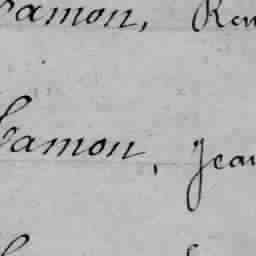 Camon, Ren
Camon, Jean